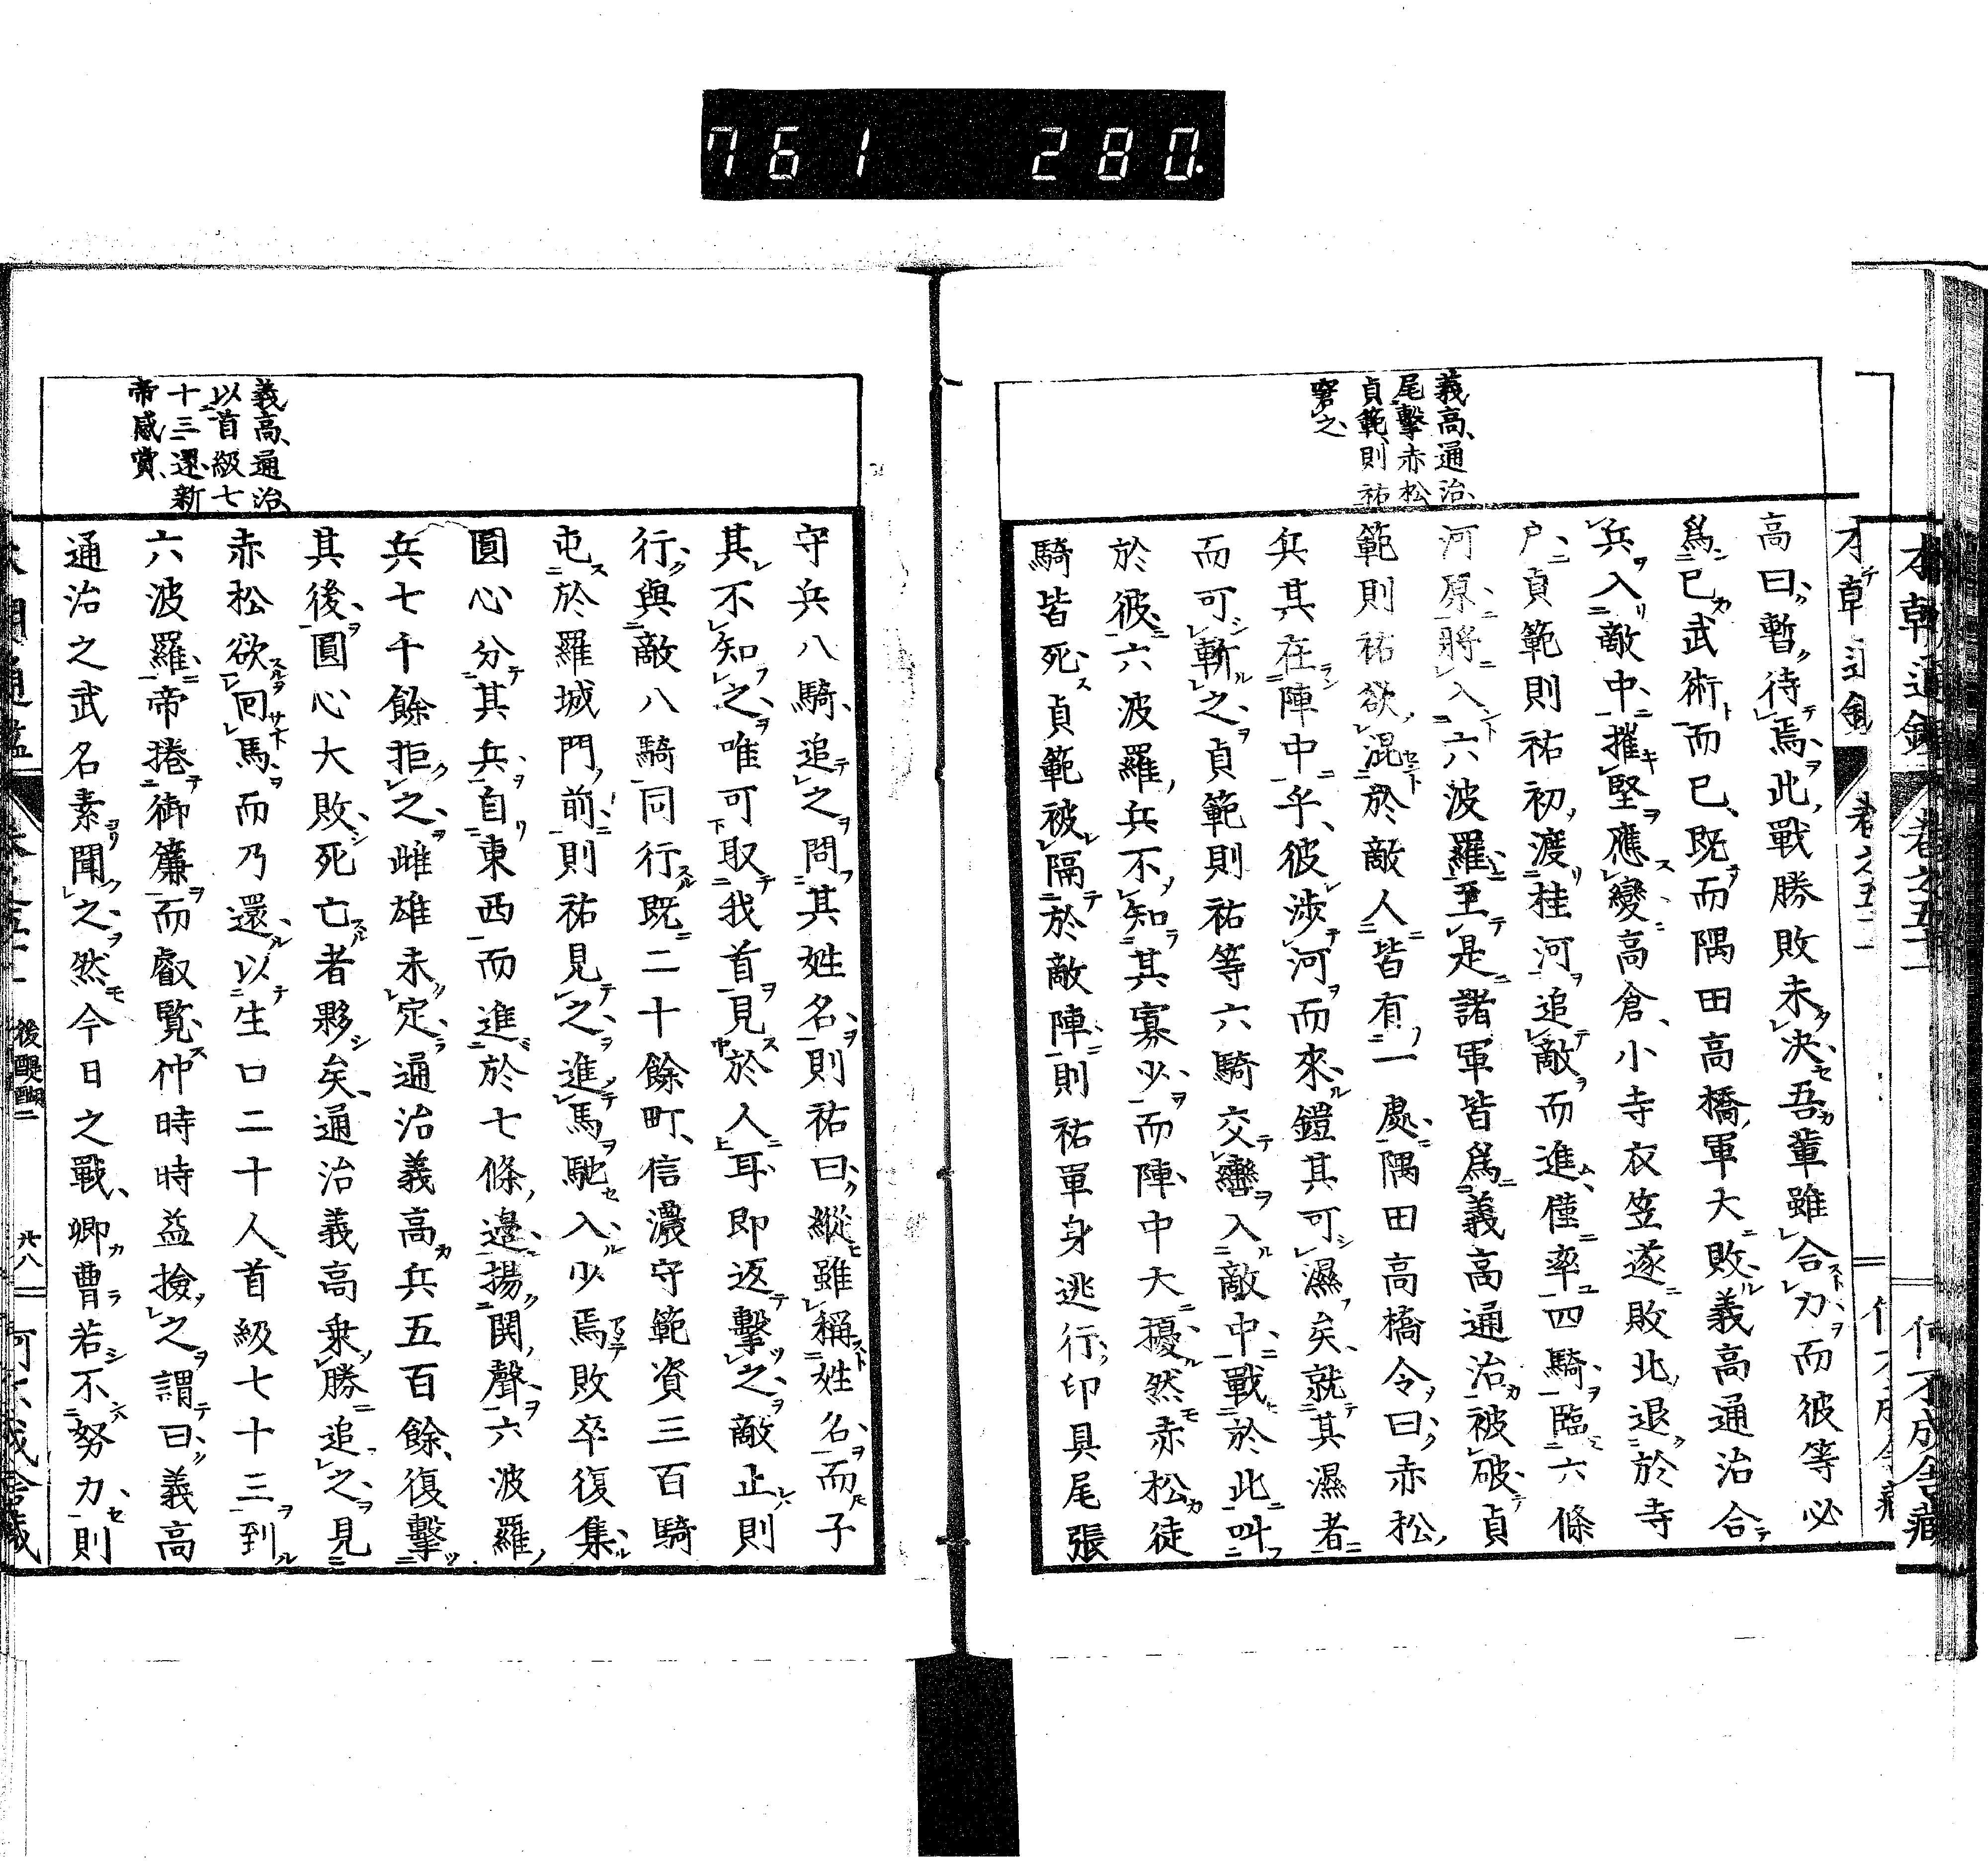 761 280
義高、通治、
尾擊赤松
貞範、則祐
窘之、
高曰、暫待焉、此戰勝敗未決、吾輩雖合力、而彼等必
爲己武術而已、既而隅田高橋軍大敗、義高通治合
兵入敵中、摧堅應變、高倉、小寺衣笠遂敗北、退於寺
戶、貞範則祐初渡桂河、追敵而進、僅率四騎、臨六條
河原、將入六波羅、至是諸軍皆爲義高通治被破、貞
範則祐欲混於敵人、皆有一處、隅田高橋令曰、赤松
兵其在陣中乎、彼涉河而來、鎧其可濕矣、就其濕者
而可斬之、貞範則祐等六騎交轡入敵中、戰於此叫
於彼、六波羅兵不知其寡少、而陣中大擾、然赤松徒
騎皆死、貞範被隔於敵陣、則祐單身逃行、印具尾張
義高、通治、
以首級七
十三還新
帝感賞、
守兵八騎、追之問其姓名、則祐曰、縱雖稱姓名、而子
其不知之、唯可取我首見於人耳、即返擊之、敵止則
行、與敵八騎同行既二十餘町、信濃守範資三百騎
屯於羅城門前、則祐見之、進馬馳入、少焉敗卒復集、
圓心分其兵、自東西而進於七條邊、揚鬨聲、六波羅
兵七千餘拒之、雌雄未定、通治義高兵五百餘、復擊
其後、圓心大敗、死亡者夥矣、通治義高乗勝追之、見
赤松欲回馬、而乃還、以生口二十人、首級七十三到
六波羅、帝捲御簾而叡覽、仲時時益撿之、謂曰、義高
通治之武名素聞之、然今日之戰、卿曹若不努力、則
後醍醐二